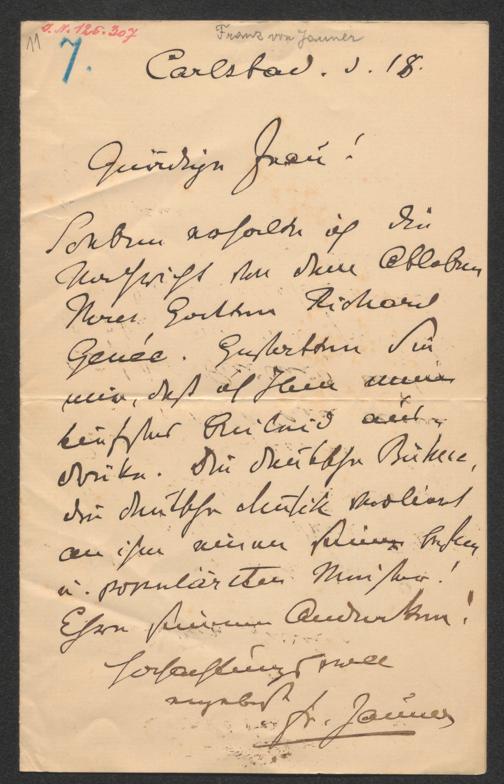 J.N. 126.307
Franz von Jauner
11
7.
Carlsbad. d. 18.
Gnädige Frau!
Soeben erhalte ich die
Nachricht von dem Ableben
Ihres Gatten Richard
Genée. Gestatten Sie
mir, daß ich Ihnen mein
tiefstes Beileid aus-
drücke. Die deutsche Bühne,
die deutsche Musik verliert
an ihm einen seiner besten
u. populärsten Meister!
Ehre seinem Andenken!
Hochachtungsvoll
ergebenst
Fr. Jauner